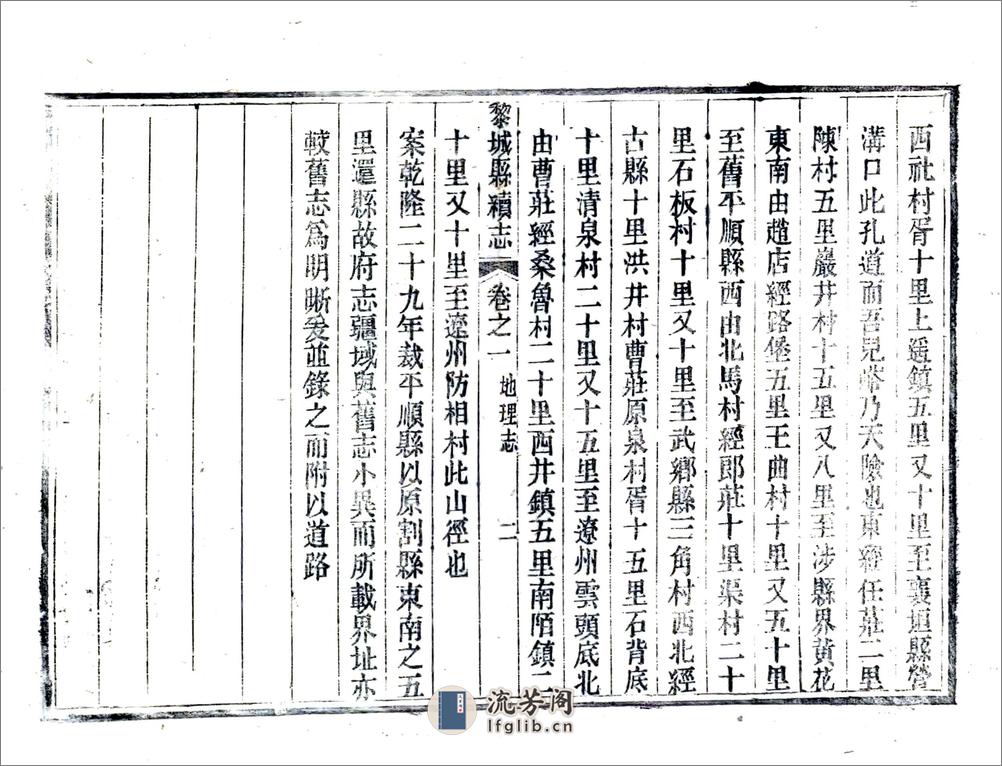 西社村胥十里上遥鎮五里又十里至襄垣縣營
溝口此孔道而吾兒峪乃天險也東經任莊二里
陳村五里巖井村十五里又八里至涉縣界黃花
東南由趙店經路堡五里王曲村十里又五十里
至舊平順縣西由北馬村經郎莊十里渠村二十
里石板村十里又十里至武鄉縣三角村西北經
古縣十里洪井村曹莊原泉村胥十五里石背底
十里清泉村二十里又十五里至遼州雲頭底北
由曹莊經桑魯村二十里西井鎮五里南陌鎮二
黎城縣續志 卷之一 地理志 二
十里又十里至遼州防相村此山徑也
案乾隆二十九年裁平順縣以原割縣東南之五
里還縣故府志疆域與舊志小異而所載界址亦
較舊志為明晰爰並錄之而附以道路
流芳阁
lfglib.cn